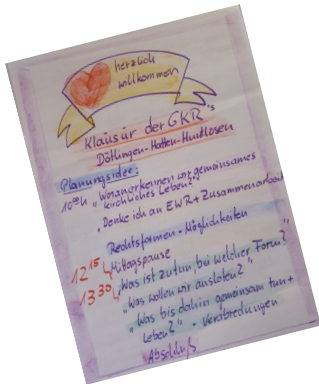 herzlich
willkommen
Klausur der GKR's
Dötlingen-Hatten-Huntlosen
Planungsidee:
10⁰⁰h "Woran erkennen wir gemeinsames
kirchliches Leben?"
"Denke ich an EWR + Zusammenarbeit
Rechtsformen - Möglichkeiten"
12¹⁵ Mittagspause
13³⁰ "Was ist zu tun, bei welcher Form?"
"Was wollen wir ausloten?"
"Was bis dahin gemeinsam tun +
leben?" - Verabredungen
Abschluß